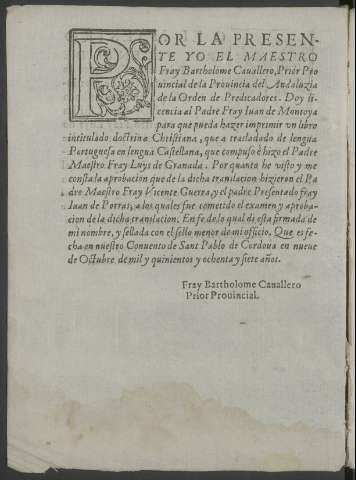 POR LA PRESEN-
TE YO EL MAESTRO
Fray Bartholome Cauallero, Prior Pro
uincial de la Prouincia del Andaluzia
de la Orden de Predicadores. Doy li
cencia al Padre Fray Iuan de Montoya
para que pueda hazer imprimir vn libro
intitulado doctrina Christiana, que a trasladado de lengua
Portuguesa en lengua Castellana, que compuso è hizo el Padre
Maestro Fray Luys de Granada. Por quanto he visto y me
consta la aprobacion que de la dicha translacion hizieron el Pa
dre Maestro Fray Vicente Guerra, y el padre Presentado fray
Iuan de Porras, a los quales fue cometido el examen y aproba-
cion de la dicha translacion. En fe de lo qual di esta firmada de
mi nombre, y sellada con el sello menor de mi officio. Que es fe-
cha en nuestro Conuento de Sant Pablo de Cordoua en nueue
de Octubre de mil y quinientos y ochenta y siete años.
Fray Bartholome Cauallero
Prior Prouincial.